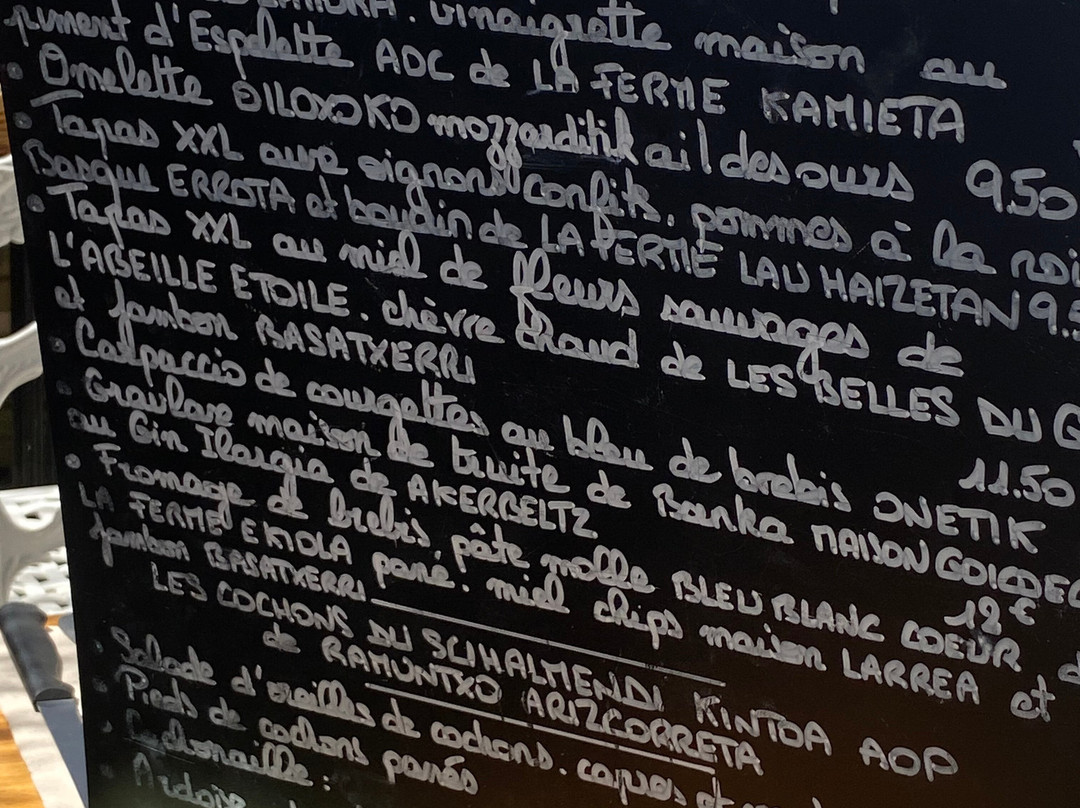 vinaigrette maison au
piment d'Espelette AOC de LA FERME KAMIETA
• Omelette OILOXOKO mozzarditik ail des ours 9.50
• Tapas XXL aux oignons confits, pommes à la
Basque ERROTA et boudin de LA FERME LAU HAIZETAN 9.5
• Tapas XXL au miel de fleurs sauvages de
L'ABEILLE ETOILE. chèvre chaud de LES BELLES DU G
et jambon BASATXERRI 11.50
• Carpaccio de courgettes au bleu de brebis ONETIK
• Gravlaxe maison de truite de Banka MAISON GOICOEC
au Gin Ilargia de AKERBELTZ 12€
• Fromage de brebis, pâte molle BLEU BLANC COEUR d
LA FERME EKIOLA pané. miel chips maison LARREA et
jambon BASATXERRI
LES COCHONS DU SCIHALMENDI KINTOA AOP
de RAMUNTXO ARIZCORRETA
• Salade d'oreilles de cochons. capres et
• Pieds de cochons panés
• Cochonaille :
• Ardoise